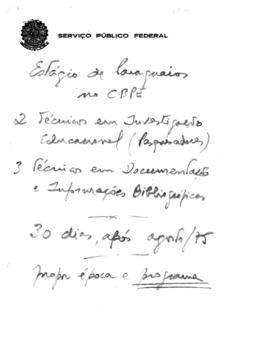 SERVIÇO PÚBLICO FEDERAL
Estágio de Paraguaios
no CBPE
2 Técnicos em Investigação
Educacional (Pesquisadores)
3 Técnicos em Documentação
e Informações Bibliográficas
30 dias, após agosto/75
propor época e programa